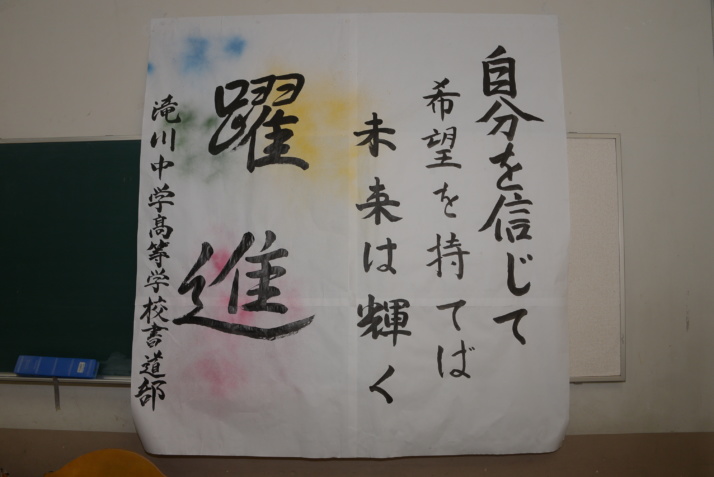 自分を信じて
希望を持てば
未来は輝く
躍進
滝川中学高等学校書道部